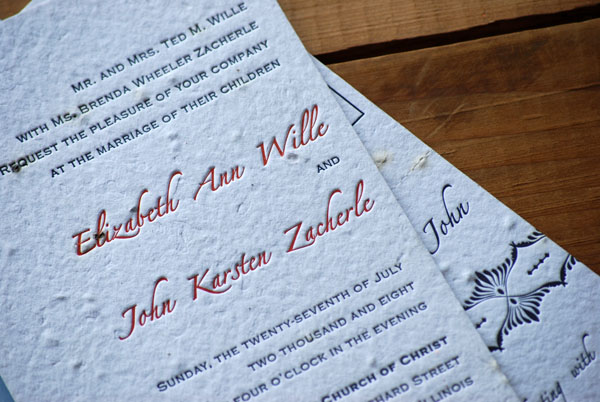 Mr. and Mrs. Ted M. Wille
with Ms. Brenda Wheeler Zacherle
request the pleasure of your company
at the marriage of their children
Elizabeth Ann Wille
and
John Karsten Zacherle
Sunday, the twenty-seventh of July
two thousand and eight
four o'clock in the evening
Church of Christ
Street
Illinois
John
with